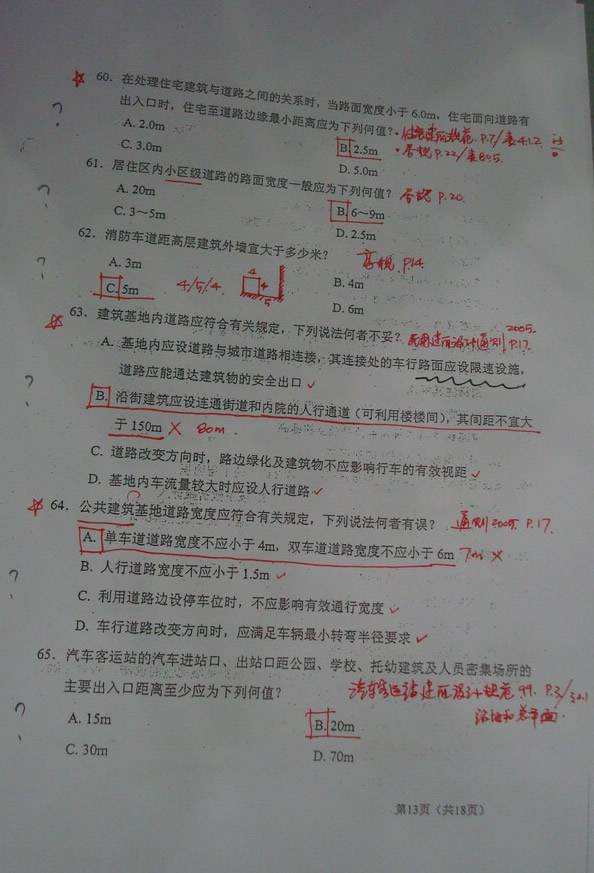 60. 在处理住宅建筑与道路之间的关系时，当路面宽度小于6.0m，住宅面向道路有
出入口时，住宅至道路边缘最小距离应为下列何值？ 住宅建筑规范 P.7/表4.1.2
A. 2.0m B. 2.5m P.22/表8.0.5
C. 3.0m D. 5.0m
61. 居住区内小区级道路的路面宽度一般应为下列何值？ P.20
A. 20m B. 6～9m
C. 3～5m D. 2.5m
62. 消防车道距高层建筑外墙宜大于多少米？ 高规 P14
A. 3m B. 4m
C. 5m 4/5/4 4 4 5 D. 6m
63. 建筑基地内道路应符合有关规定，下列说法何者不妥？ 民用建筑设计通则 2005. P.17.
A. 基地内应设道路与城市道路相连接，其连接处的车行路面应设限速设施，
道路应能通达建筑物的安全出口 ✓
B. 沿街建筑应设连通街道和内院的人行通道（可利用楼梯间），其间距不宜大
于150m × 80m.
C. 道路改变方向时，路边绿化及建筑物不应影响行车的有效视距 ✓
D. 基地内车流量较大时应设人行道路 ✓
64. 公共建筑基地道路宽度应符合有关规定，下列说法何者有误？ 通则2005 P.17.
A. 单车道道路宽度不应小于4m，双车道道路宽度不应小于6m 7m ×
B. 人行道路宽度不应小于1.5m ✓
C. 利用道路边设停车位时，不应影响有效通行宽度 ✓
D. 车行道路改变方向时，应满足车辆最小转弯半径要求 ✓
65. 汽车客运站的汽车进站口、出站口距公园、学校、托幼建筑及人员密集场所的
主要出入口距离至少应为下列何值？ 汽车客运站建筑设计规范 99. P.3/3.2.1
A. 15m B. 20m 总平面.
C. 30m D. 70m
第13页（共18页）